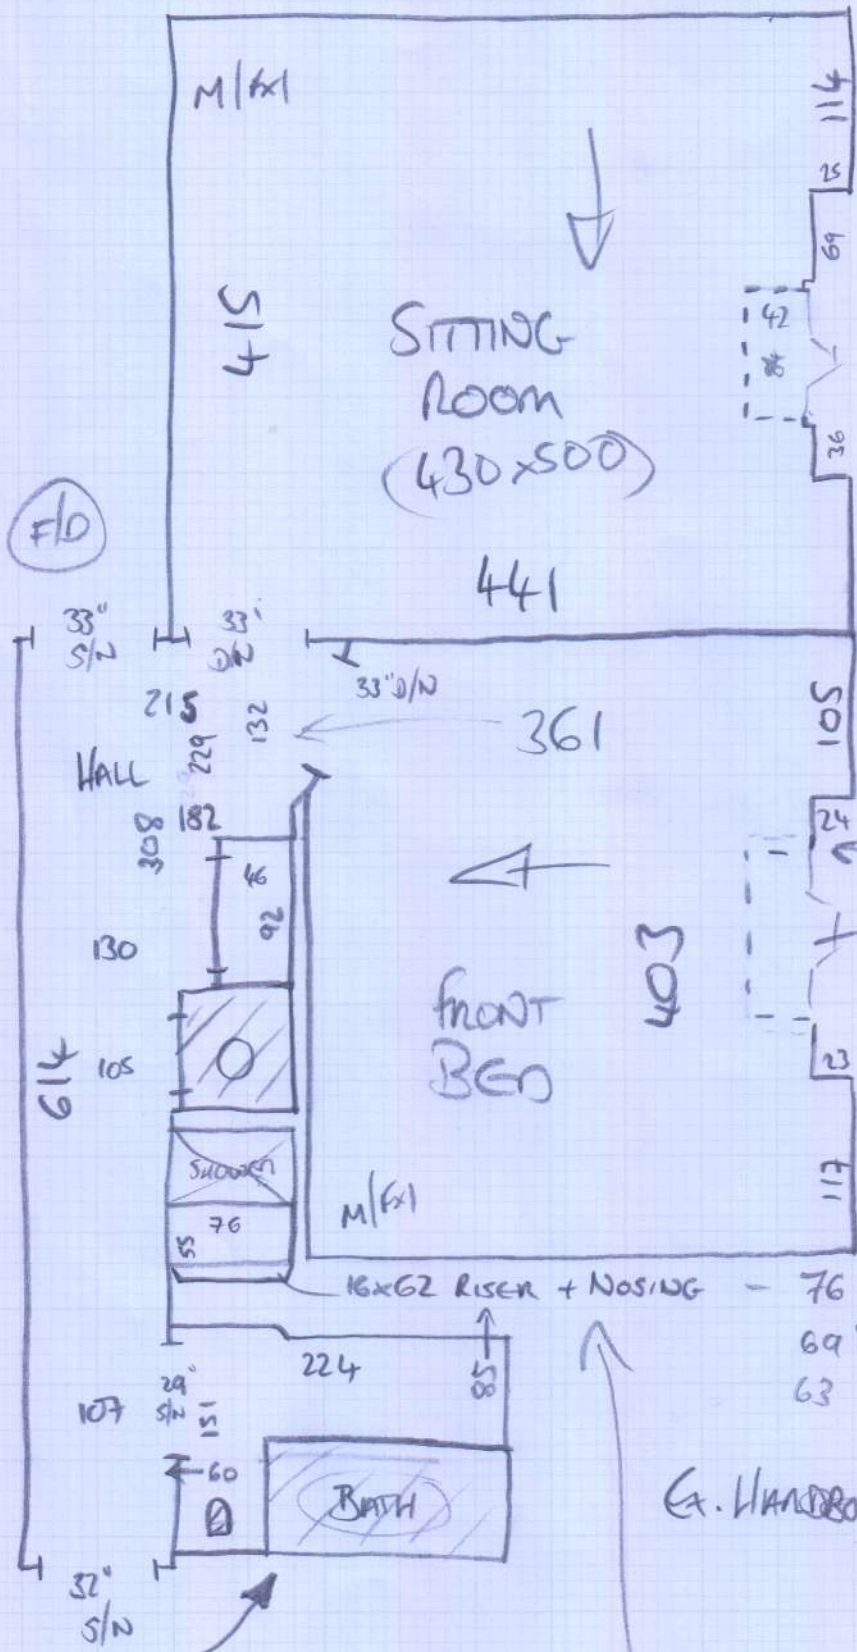 M/Fxl
114
25
69
42
84
36
415
SITTING
ROOM
(430x500)
441
F/D
33"
S/N
33"
D/N
33"D/N
215
132
229
361
105
HALL
182
308
24
46
92
130
403
FRONT
BED
105
614
23
SHOWER
76
55
M/Fxl
117
16x62 RISER + NOSING - 76
69
63
224
85
107
29"
S/N
151
60
BATH
Ex. HARDBO
32"
S/N